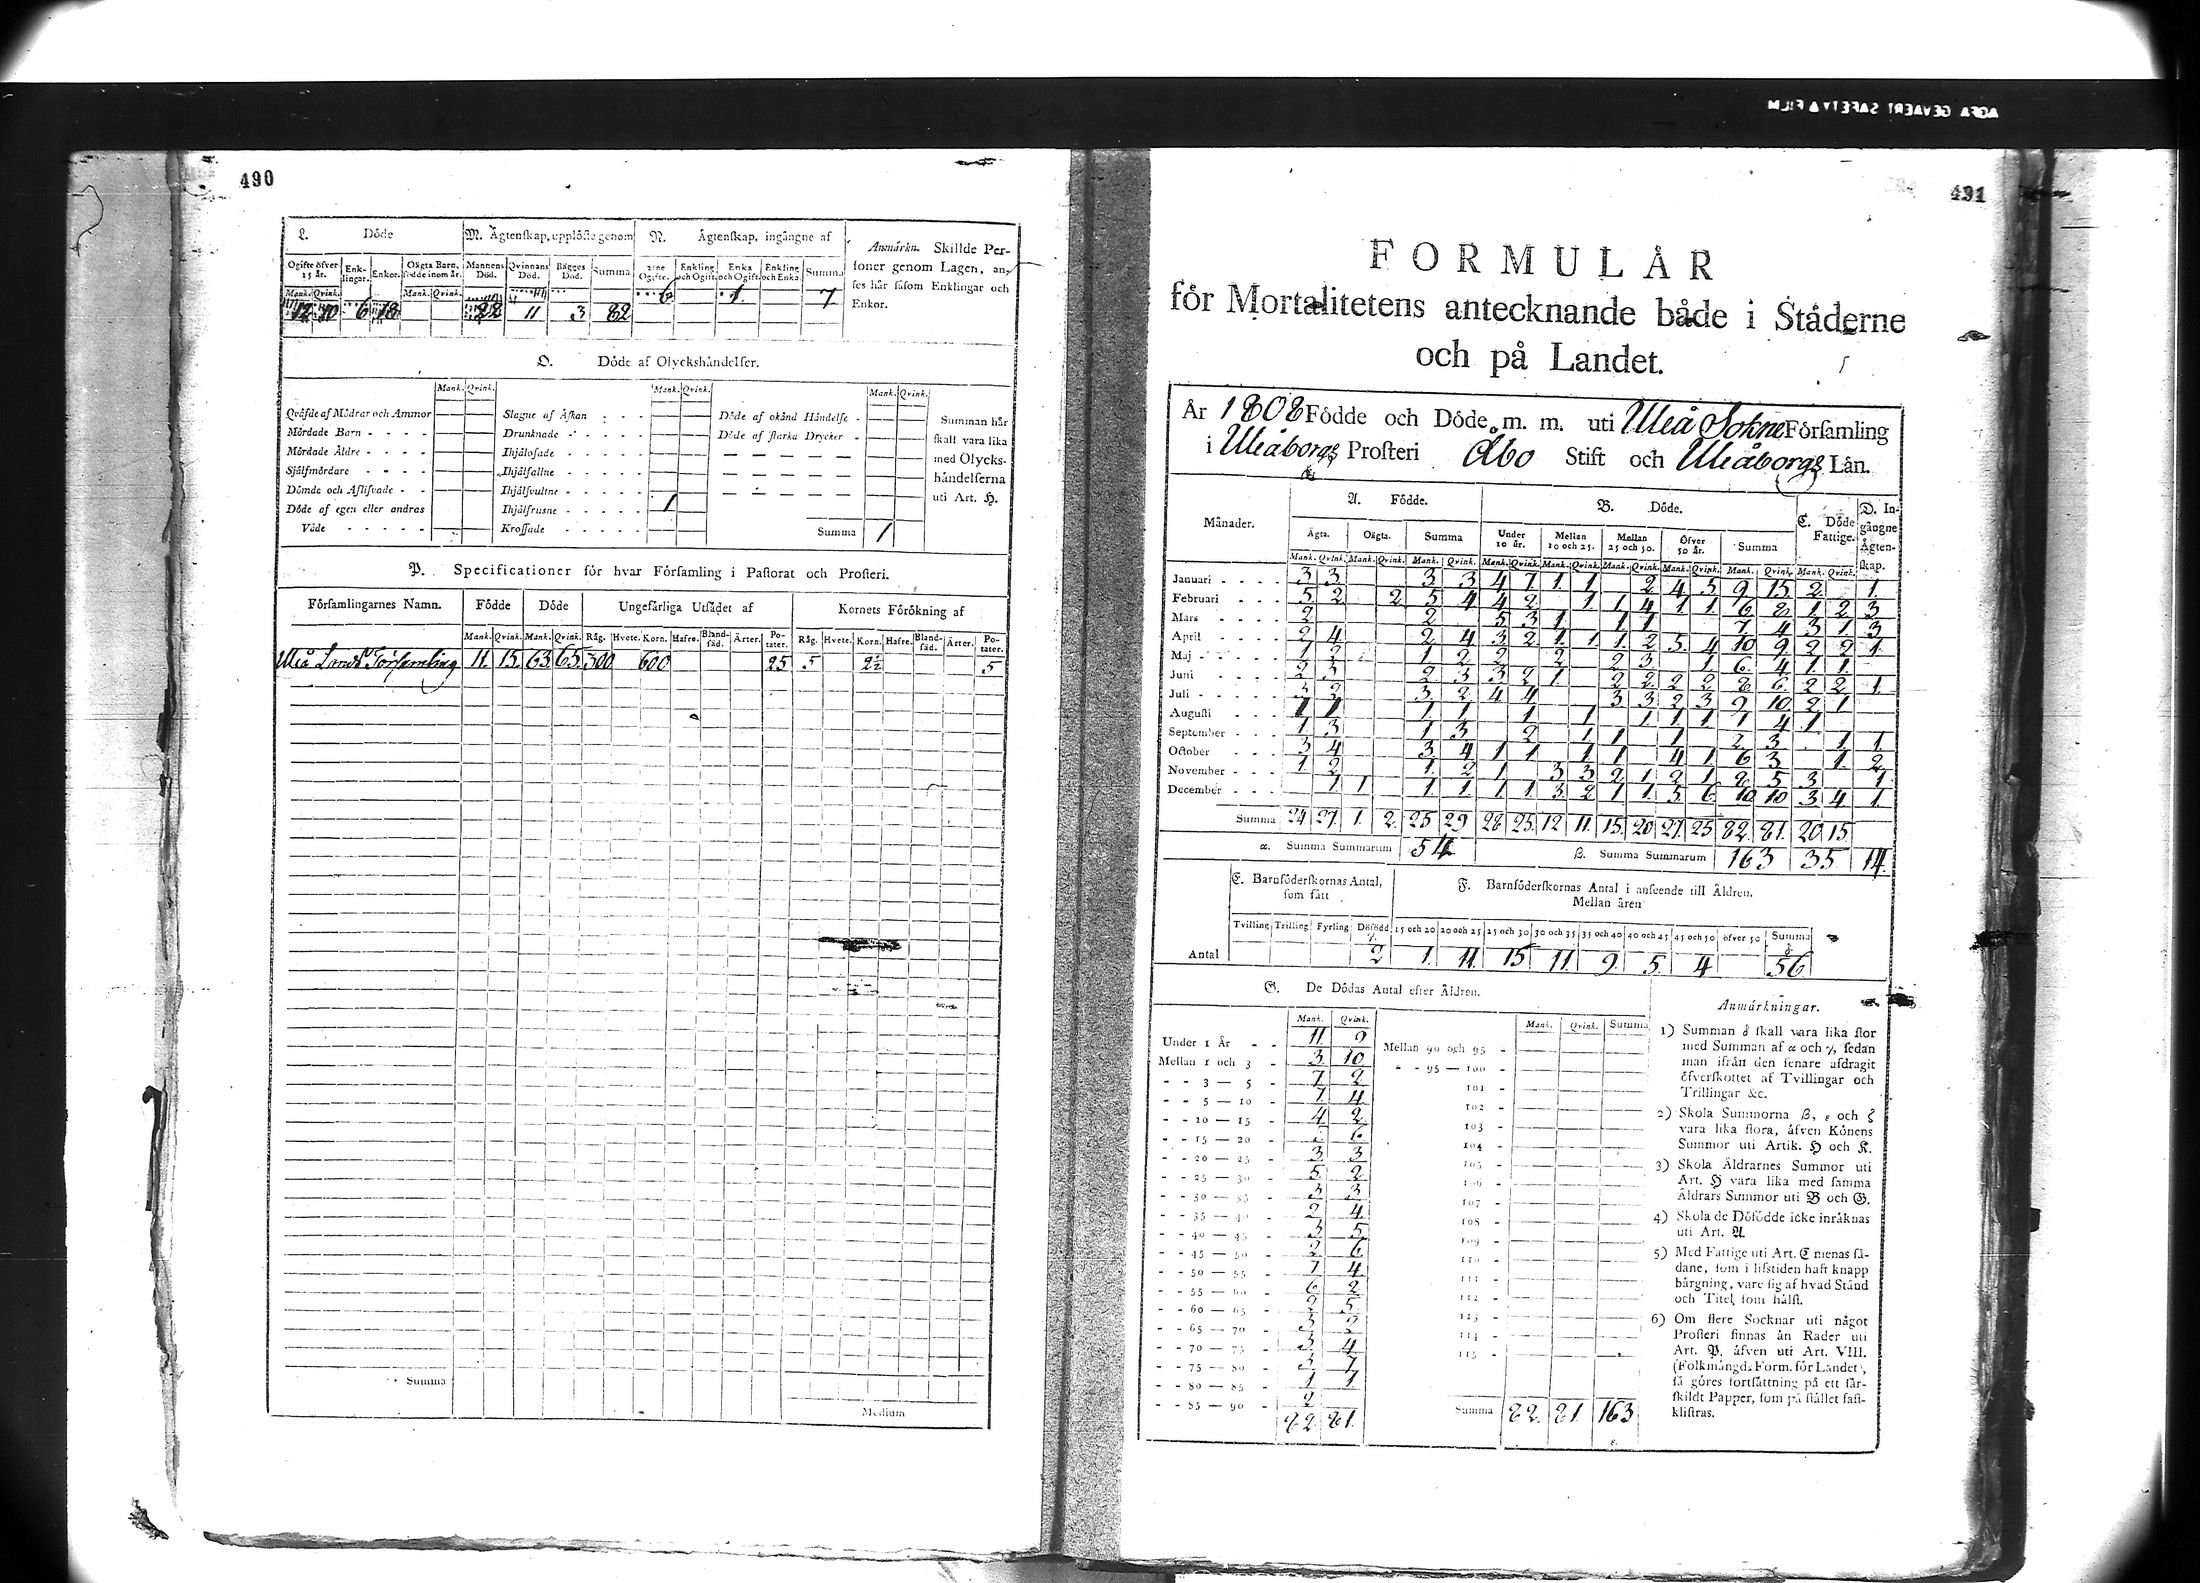 AGFA GEVAERT SAFETY FILM
490
L. Döde
M. Ägtenskap, upplöste genom
N. Ägtenskap, ingångne af
Ogifte öfver 15 år. Enklingar. Enkor. Oägta Barn, födde inom år. Mannens Död. Qvinnans Död. Bägges Död. Summa
Ogifte. Enkling och Ogift. Enka och Ogift. Enkling och Enka. Summa
Mank. Qvink. Mank. Qvink.
6 18 22 11 3 6 1 7
Anmärkn. Skillde Personer genom Lagen, anses här såsom Enklingar och Enkor.
O. Döde af Olyckshändelser.
Mank. Qvink. Mank. Qvink. Mank. Qvink.
Qväfde af Mödrar och Ammor
Mördade Barn
Mördade Äldre
Sjelfmördare
Dömde och Aflifvade
Döde af egen eller andras Våde
Slagne af Åskan
Drunknade
Ihjälosade
Ihjälfallne
Ihjälsvultne
Ihjälfrusne 1
Krossade
Döde af okänd Händelse
Döde af starka Drycker
Summa 1
Summan här skall vara lika med Olyckshändelserna uti Art. H.
P. Specificationer för hvar Församling i Pastorat och Prosteri.
Församlingarnes Namn. Födde Döde Ungefärliga Utsädet af Kornets Förökning af
Mank. Qvink. Mank. Qvink. Råg. Hvete. Korn. Hafre. Blandsäd. Ärter. Potater. Råg. Hvete. Korn. Hafre. Blandsäd. Ärter. Potater.
Uleå Landt Församling 11. 15. 63 65. 300 600 25 5 2½ 5
Summa
Medium
491
FORMULÄR
för Mortalitetens antecknande både i Städerne
och på Landet.
År 1808 Födde och Döde m. m. uti Uleå Sokne Församling
i Uleåborgs Prosteri Åbo Stift och Uleåborgs Län.
Månader.
A. Födde.
B. Döde.
C. Döde Fattige.
D. Ingångne Ägtenskap.
Ägta. Oägta. Summa Under 10 år. Mellan 10 och 25. Mellan 25 och 50. Öfver 50 år. Summa
Mank. Qvink. Mank. Qvink. Mank. Qvink. Mank. Qvink. Mank. Qvink. Mank. Qvink. Mank. Qvink. Mank. Qvink. Mank. Qvink.
Januari 3 3 3 3 4 7 1 1 2 4 5 9 15 2 1
Februari 5 2 2 5 4 4 2 1 1 4 1 1 6 8 1 2 3
Mars 2 2 5 3 1 1 1 7 4 3 1 3
April 2 4 2 4 3 2 1 1 1 2 5 4 10 9 2 2 1
Maj 1 2 1 2 2 2 2 3 1 6 4 1 1
Juni 2 3 2 3 3 2 1 2 2 2 2 8 6 2 2 1
Juli 3 2 3 2 4 4 3 3 2 3 9 10 2 1
Augusti 1 1 1 1 1 1 1 1 1 1 4 1
September 1 3 1 3 2 1 1 1 2 3 1 1
October 3 4 3 4 1 1 1 1 4 1 6 3 1 2
November 1 2 1 2 1 3 3 2 1 2 1 8 5 3 1
December 1 1 1 1 1 1 3 2 1 1 5 6 10 10 3 4 1
Summa 24 27 1 2 25 29 28 25 12 11 15 20 27 25 82 81 20 15
α. Summa Summarum 54
β. Summa Summarum 163 35 14
E. Barnföderskornas Antal, som fått
F. Barnföderskornas Antal i anseende till Åldren. Mellan åren
Tvilling Trilling Fyrling Dödfödd 15 och 20 20 och 25 25 och 30 30 och 35 35 och 40 40 och 45 45 och 50 öfver 50 Summa
Antal 2 1 11 15 11 9 5 4 56
G. De Dödas Antal efter Åldren.
Mank. Qvink.
Under 1 År 11 9
Mellan 1 och 3 3 10
3 — 5 7 2
5 — 10 7 4
10 — 15 4 2
15 — 20 6
20 — 25 3 3
25 — 30 5 2
30 — 35 3 3
35 — 40 2 4
40 — 45 3 5
45 — 50 2 6
50 — 55 7 4
55 — 60 6 2
60 — 65 2 5
65 — 70 3 2
70 — 75 3 4
75 — 80 3 7
80 — 85 1 1
85 — 90 2
82 81
Mank. Qvink. Summa
Mellan 90 och 95
95 — 100
101
102
103
104
105
106
107
108
109
110
111
112
113
114
115
Summa 82 81 163
Anmärkningar.
1) Summan δ skall vara lika stor
med Summan af α och γ, sedan
man ifrån den senare afdragit
öfverskottet af Tvillingar och
Trillingar &c.
2) Skola Summorna β, ε och ζ
vara lika stora, äfven Könens
Summor uti Artik. H och K.
3) Skola Åldrarnes Summor uti
Art. H vara lika med samma
Åldrars Summor uti B och G.
4) Skola de Dödfödde icke inräknas
uti Art. A.
5) Med Fattige uti Art. C menas sådane,
som i lifstiden haft knapp
bärgning, vare sig af hvad Stånd
och Titel som hälst.
6) Om flere Socknar uti något
Prosteri finnas än Rader uti
Art. P. äfven uti Art. VIII.
(Folkmängds Form. för Landet),
så göres fortsättning på ett särskildt
Papper, som på stället fastklistras.